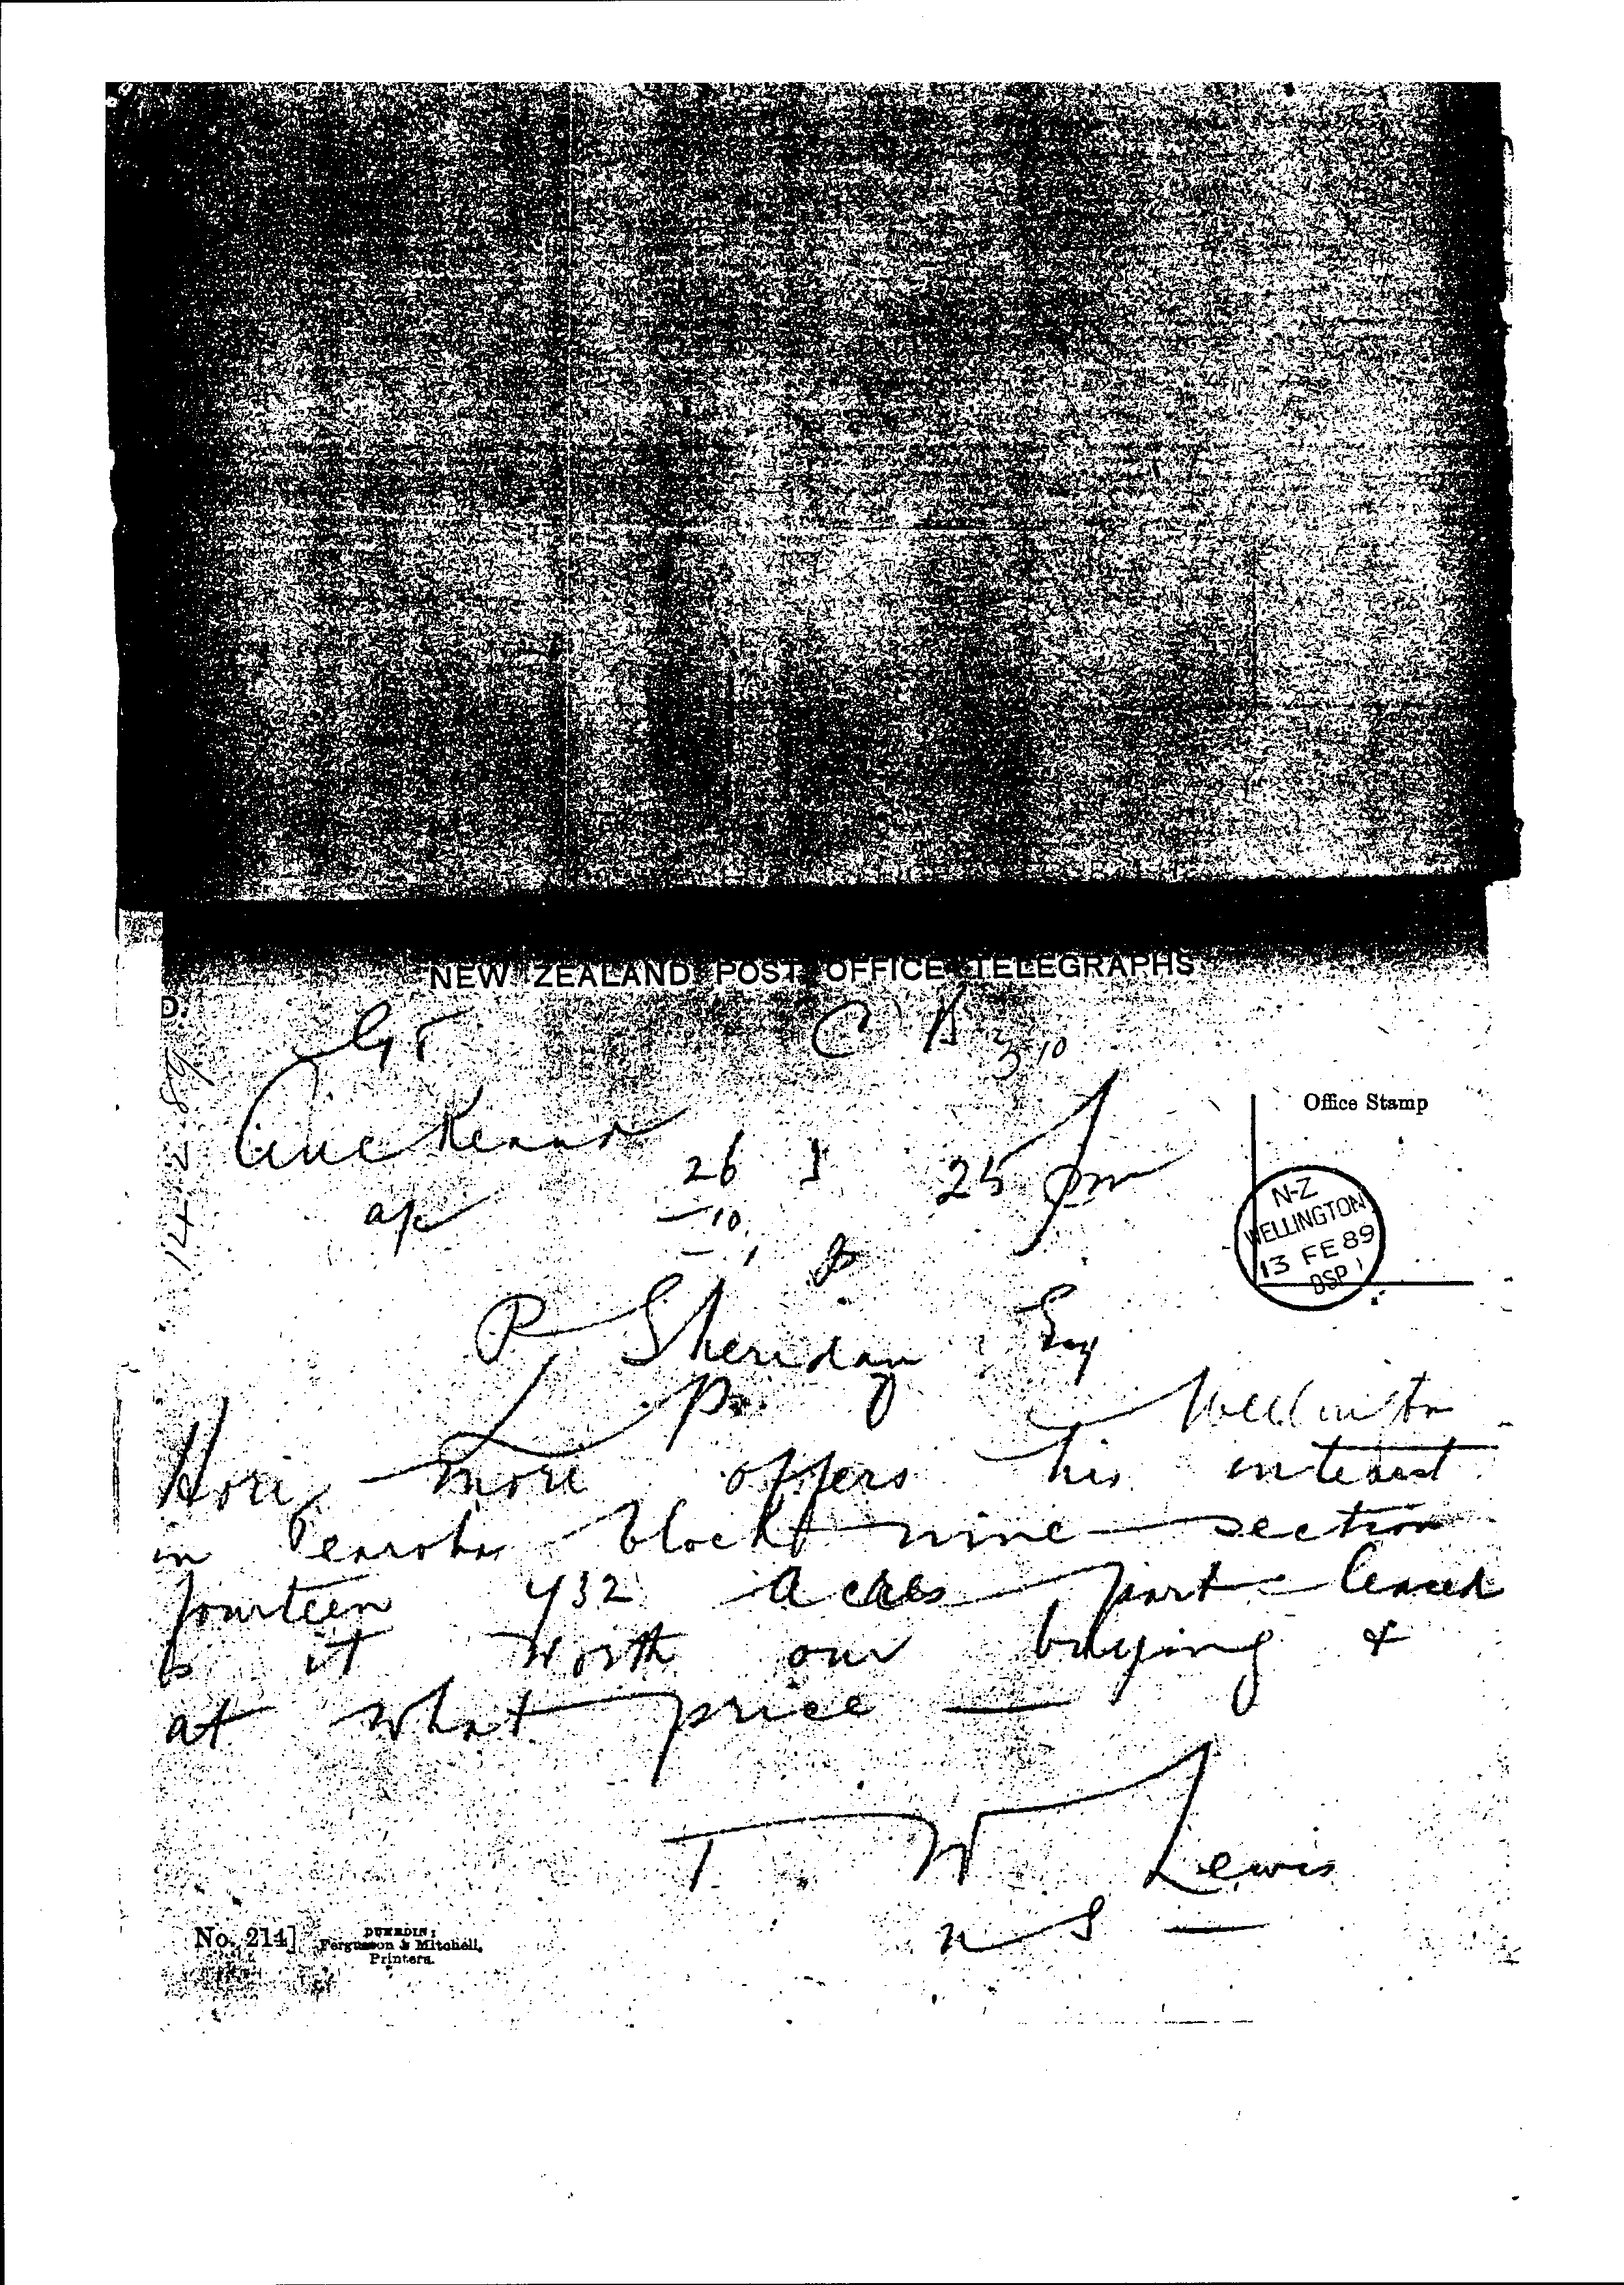 NEW ZEALAND POST OFFICE TELEGRAPHS
D.
GT
3 10
Office Stamp
Auckland
26 25 pm
a/c
10
14.2.89
N-Z
WELLINGTON
13 FE 89
P Sheridan Esq
Wellington
Hori more offers his interest
in Tearoha block nine section
fourteen 432 acres part leased
Is it worth our buying &
at what price —
T W Lewis
n S —
No. 214]
DUNEDIN:
Fergusson & Mitchell,
Printers.